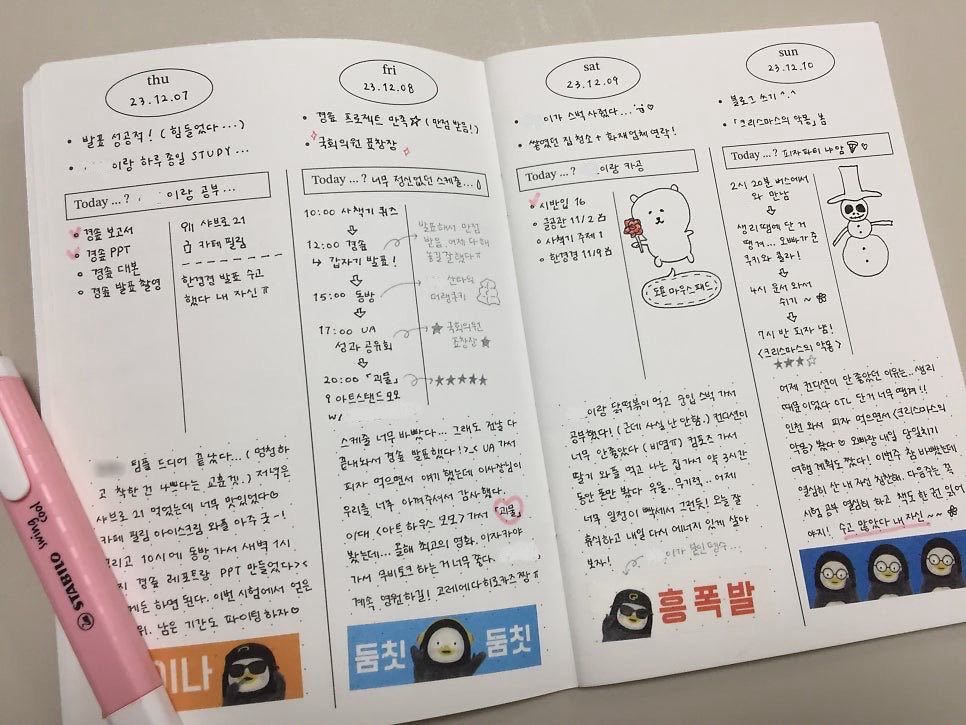 thu
23.12.07
• 발표 성공적! (힘들었다...)
• 이랑 하루 종일 STUDY...
Today ...? 이랑 공부...
경솔 보고서
경솔 PPT
경솔 대본
경솔 발표 촬영
샤브로 21
카페 필림
한경경 발표 수고
했다 내 자신 ㅠ
팀플 드디어 끝났다... (멍청하
고 착한 건 나쁘다는 교훈 겟.) 저녁은
샤브로 21 먹었는데 너무 맛있었다♡
카페 필림 아이스크림 와플 아주 굿-!
그리고 10시에 동방 가서 새벽 1시
경솔 레포트랑 PPT 만들었다><
게든 하면 된다. 이번 시험에서 얻은
위. 남은 기간도 파이팅하자♡
이나
fri
23.12.08
• 경솔 프로젝트 만족☆ (만점 받음!)
• 국회의원 표창장
Today ...? 너무 정신없던 스케줄...
10:00 사책기 퀴즈
12:00 경솔
↳ 갑자기 발표!
15:00 동방
17:00 UA
성과 공유회
20:00 「괴물」
아트스탠드모모
w/
발표해서 만점
받음. 어제 다 해
놓길 잘했다ㅠ
산타의
머랭쿠키
★ 국회의원
표창장 ★
★★★★★
스케줄 너무 바빴다... 그래도 전날 다
끝내놔서 경솔 발표했다!>_< UA 가서
피자 먹으면서 얘기 했는데 이사장님이
우리를 너무 아껴주셔서 감사했다.
이대 <아트 하우스 모모>가서 「괴물」
봤는데... 올해 최고의 영화. 이자카야
가서 무비토크 하는 거 너무 좋다.
계속 영원하길! 고레에다 히로카즈 짱 ㅠ
둠칫 둠칫
sat
23.12.09
• 이가 스벅 사줬다...
• 쌓였던 집 청소 + 화재업체 연락!
Today ...? 이랑 카공
시반입 16
글금관 11/2
사책기 주제 1
한경경 11/9
도톤 마우스패드
이랑 닭떡볶이 먹고 군입 스벅 가서
공부했다! (근데 사실 난 안함.) 컨디션이
너무 안좋았다 (비염ㅠ) 컴포즈 가서
딸기 와플 먹고 나는 집가서 약 3시간
동안 폰만 봤다 우울.. 무기력.. 어제
너무 일정이 빡세서 그런듯! 오늘 잘
휴식하고 내일 다시 에너지 있게 살아
보자! 이가 낭인 필수...
흥폭발
sun
23.12.10
• 블로그 쓰기 ^.^
• 「크리스마스의 악몽」 봄
Today ...? 피자파티 냐암
2시 20분 버스에서
와 만남
생리 땜에 단 거
땡겨... 오빠가 준
쿠키와 콜라!
4시 문서 와서
쉬기 ~
7시 반 피자 냠!
<크리스마스의 악몽>
★★★☆
어제 컨디션이 안 좋았던 이유는.. 생리
때문이었다 OTL 단거 너무 땡겨!!
인천 와서 피자 먹으면서 <크리스마스의
악몽> 봤다♡ 오빠랑 내일 당일치기
여행 계획도 짰다! 이번주 참 바빴는데
열심히 산 내 자신 칭찬해. 다음주는 꼭
시험 공부 열심히 하고 책도 한 권 읽어
야지! 수고 많았다 내 자신~~
STABILO
swing
cool